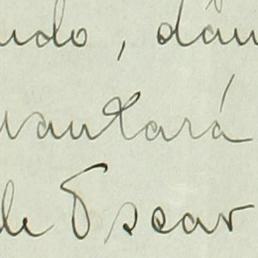 udo, dân
vantará
de Oscar